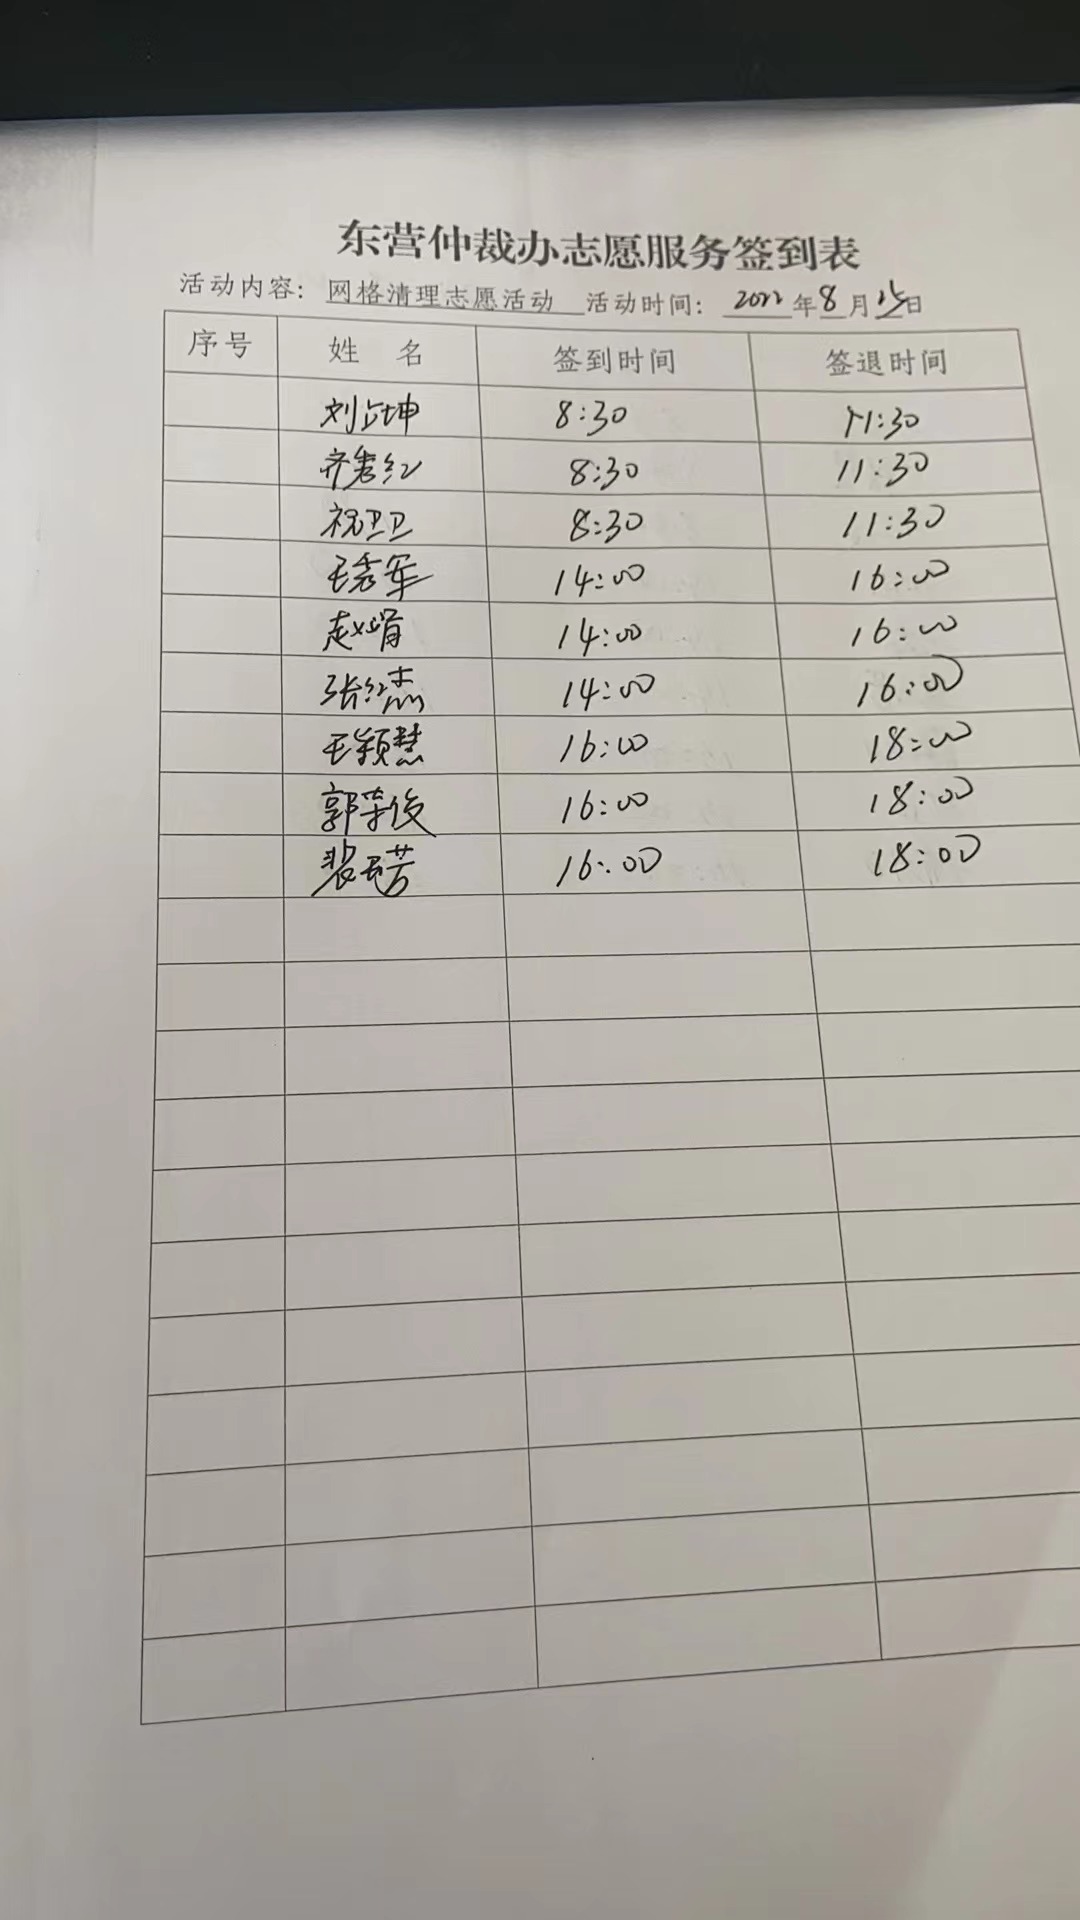 东营仲裁办志愿服务签到表
活动内容：网格清理志愿活动 活动时间：2022年8月25日
序号 姓 名 签到时间 签退时间
刘占坤 8:30 11:30
齐秀红 8:30 11:30
祝卫卫 8:30 11:30
王秀军 14:00 16:00
赵娟 14:00 16:00
张红杰 14:00 16:00
王颖慧 16:00 18:00
郭荣俊 16:00 18:00
裴玉芳 16:00 18:00